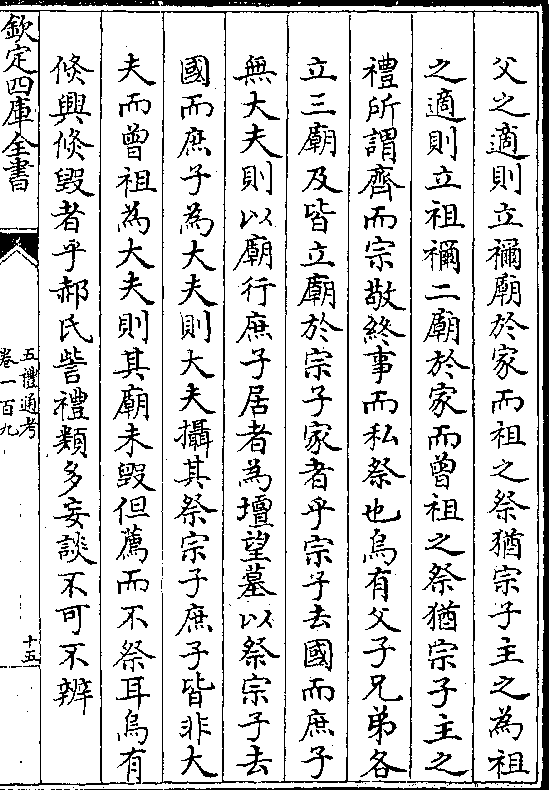 父之適則立禰廟於家而祖之祭猶宗子主之為祖
之適則立祖禰二廟於家而曾祖之祭猶宗子主之
禮所謂齊而宗敬終事而私祭也烏有父子兄弟各
立三廟及皆立廟於宗子家者乎宗子去國而庶子
無大夫則以廟行庶子居者為壇望墓以祭宗子去
國而庶子為大夫則大夫攝其祭宗子庶子皆非大
夫而曾祖為大夫則其廟未毀但薦而不祭耳烏有
倏興倏毀者乎郝氏訾禮類多妄談不可不辨
欽定四庫全書
五禮通考
卷一百九
十五